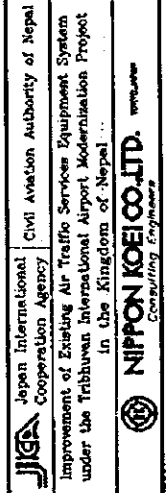 JICA
Japan International
Cooperation Agency
Civil Aviation Authority of Nepal
Improvement of Existing Air Traffic Services Equipment System
under the Tribhuvan International Airport Modernization Project
in the Kingdom of Nepal
NIPPON KOEI CO., LTD. TOKYO, JAPAN
Consulting Engineers